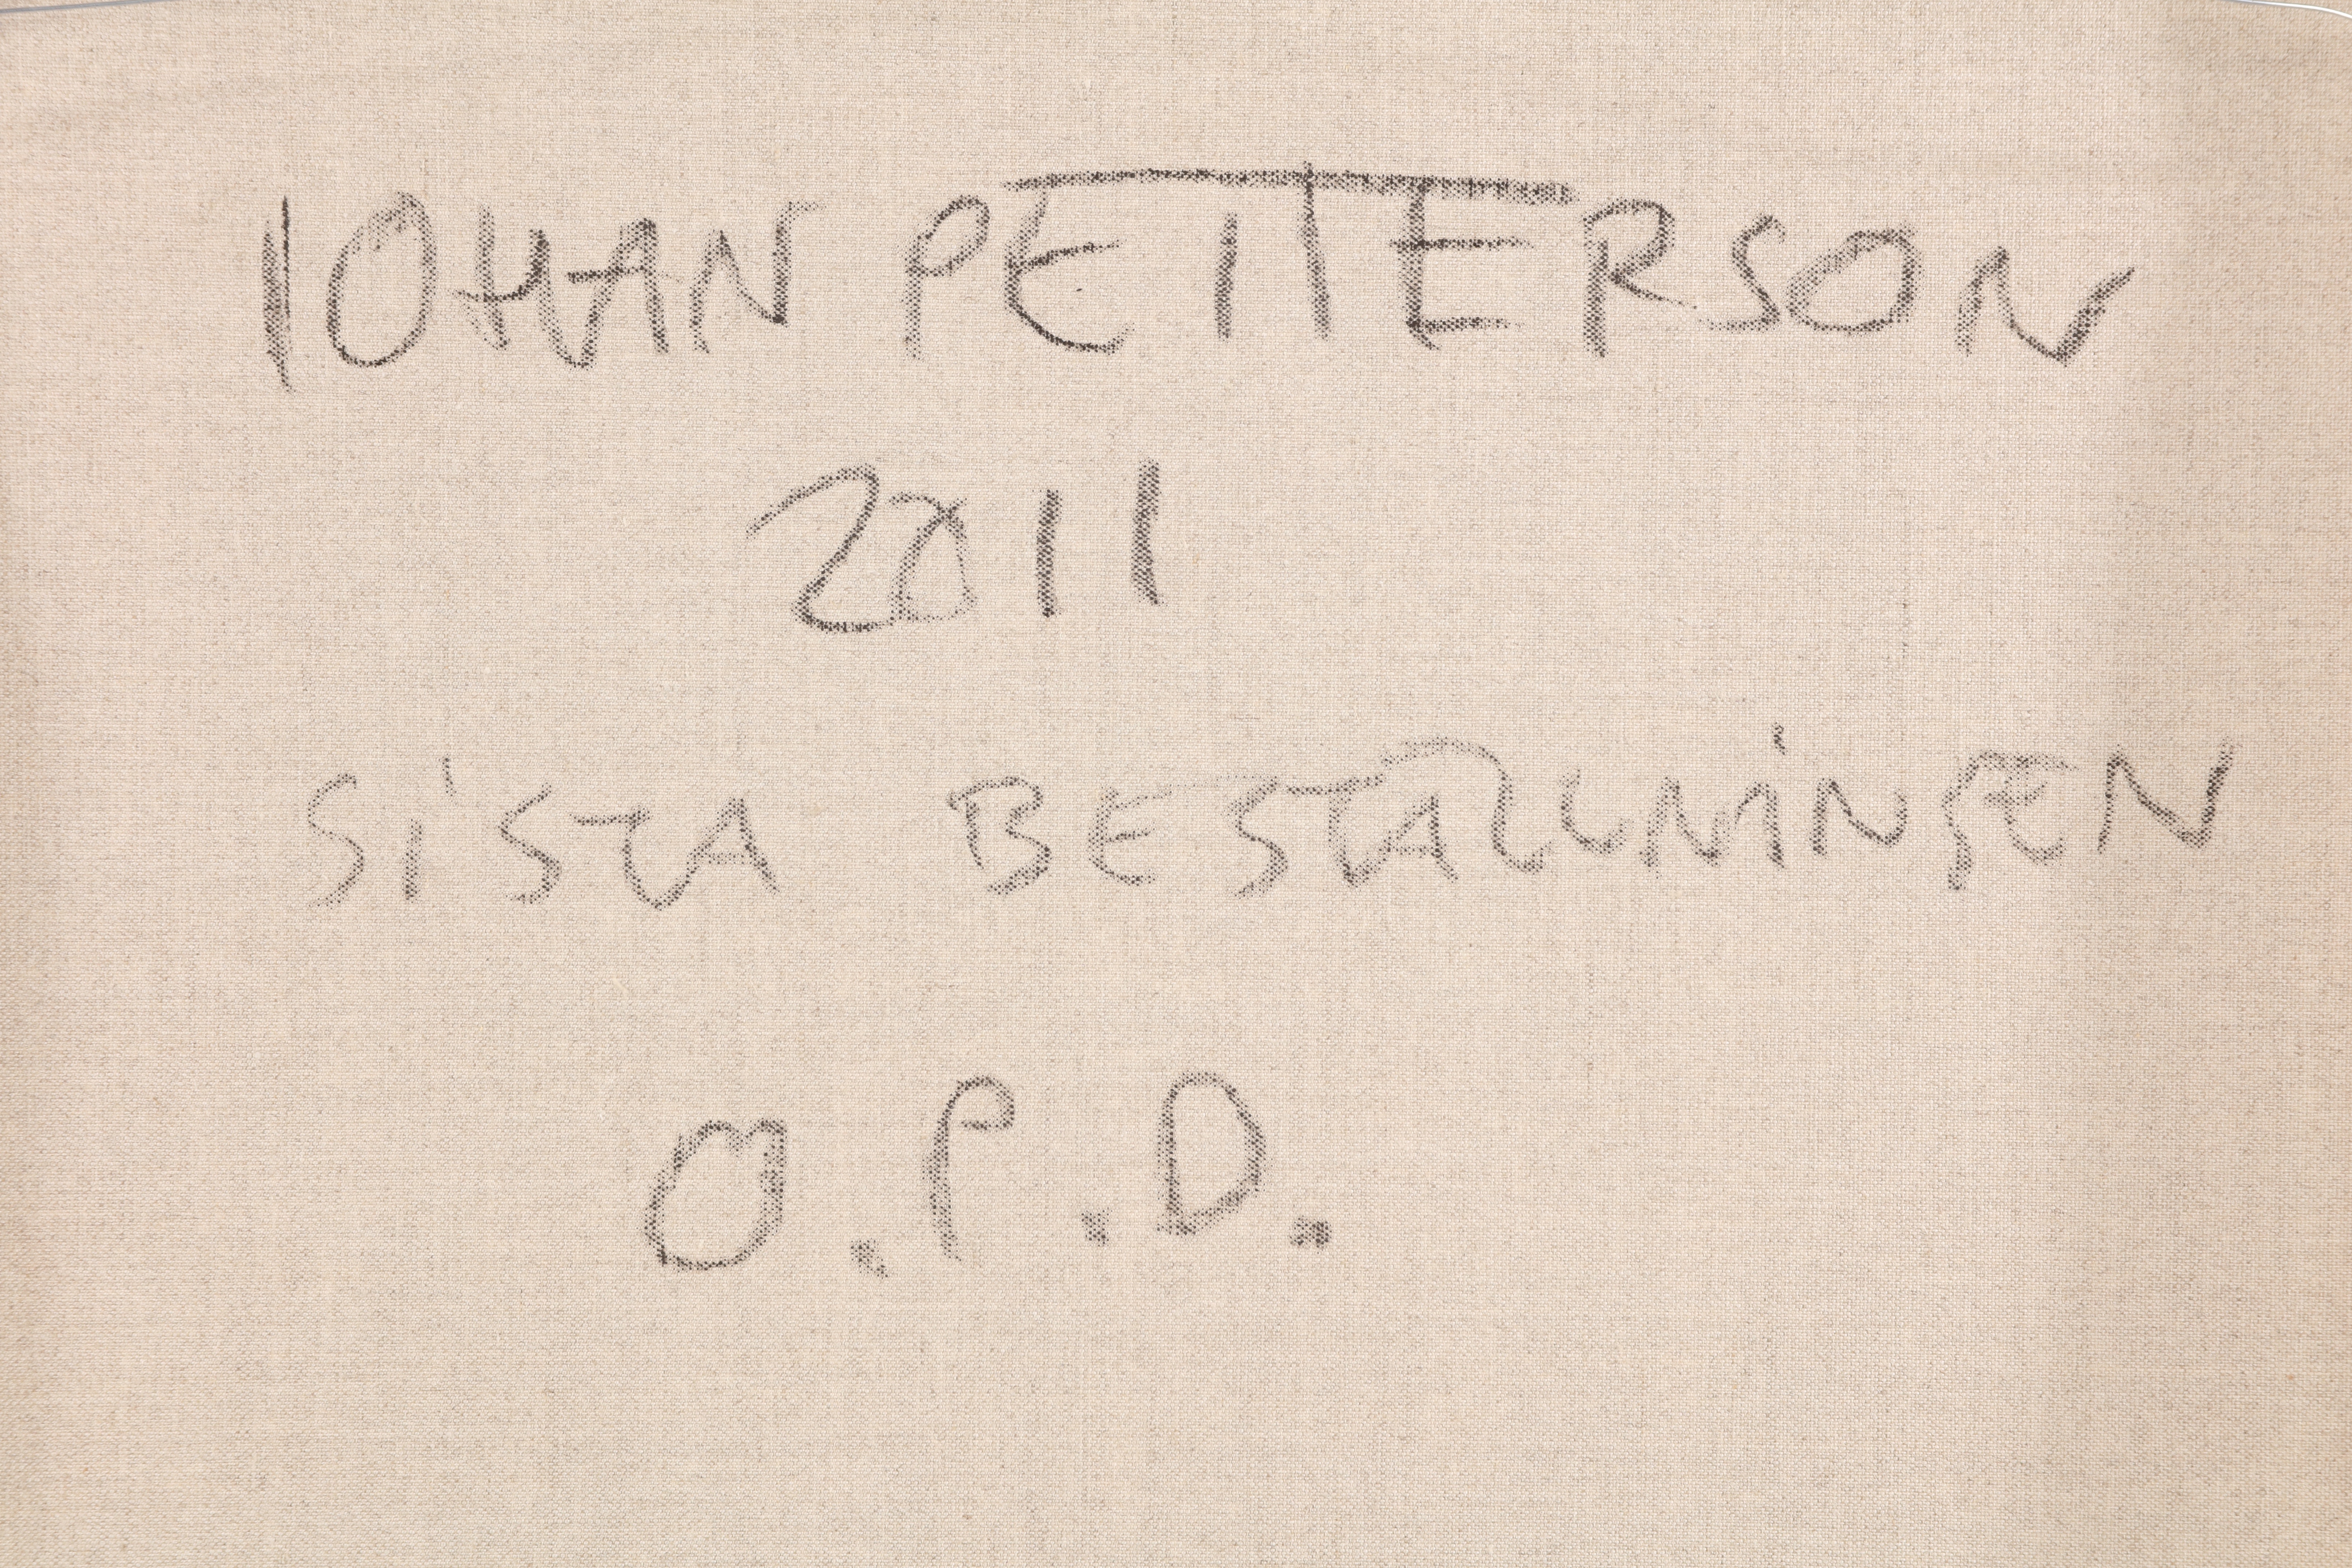 JOHAN PETTERSON
2011
SISTA BESTALLNINGEN
O.P.D.